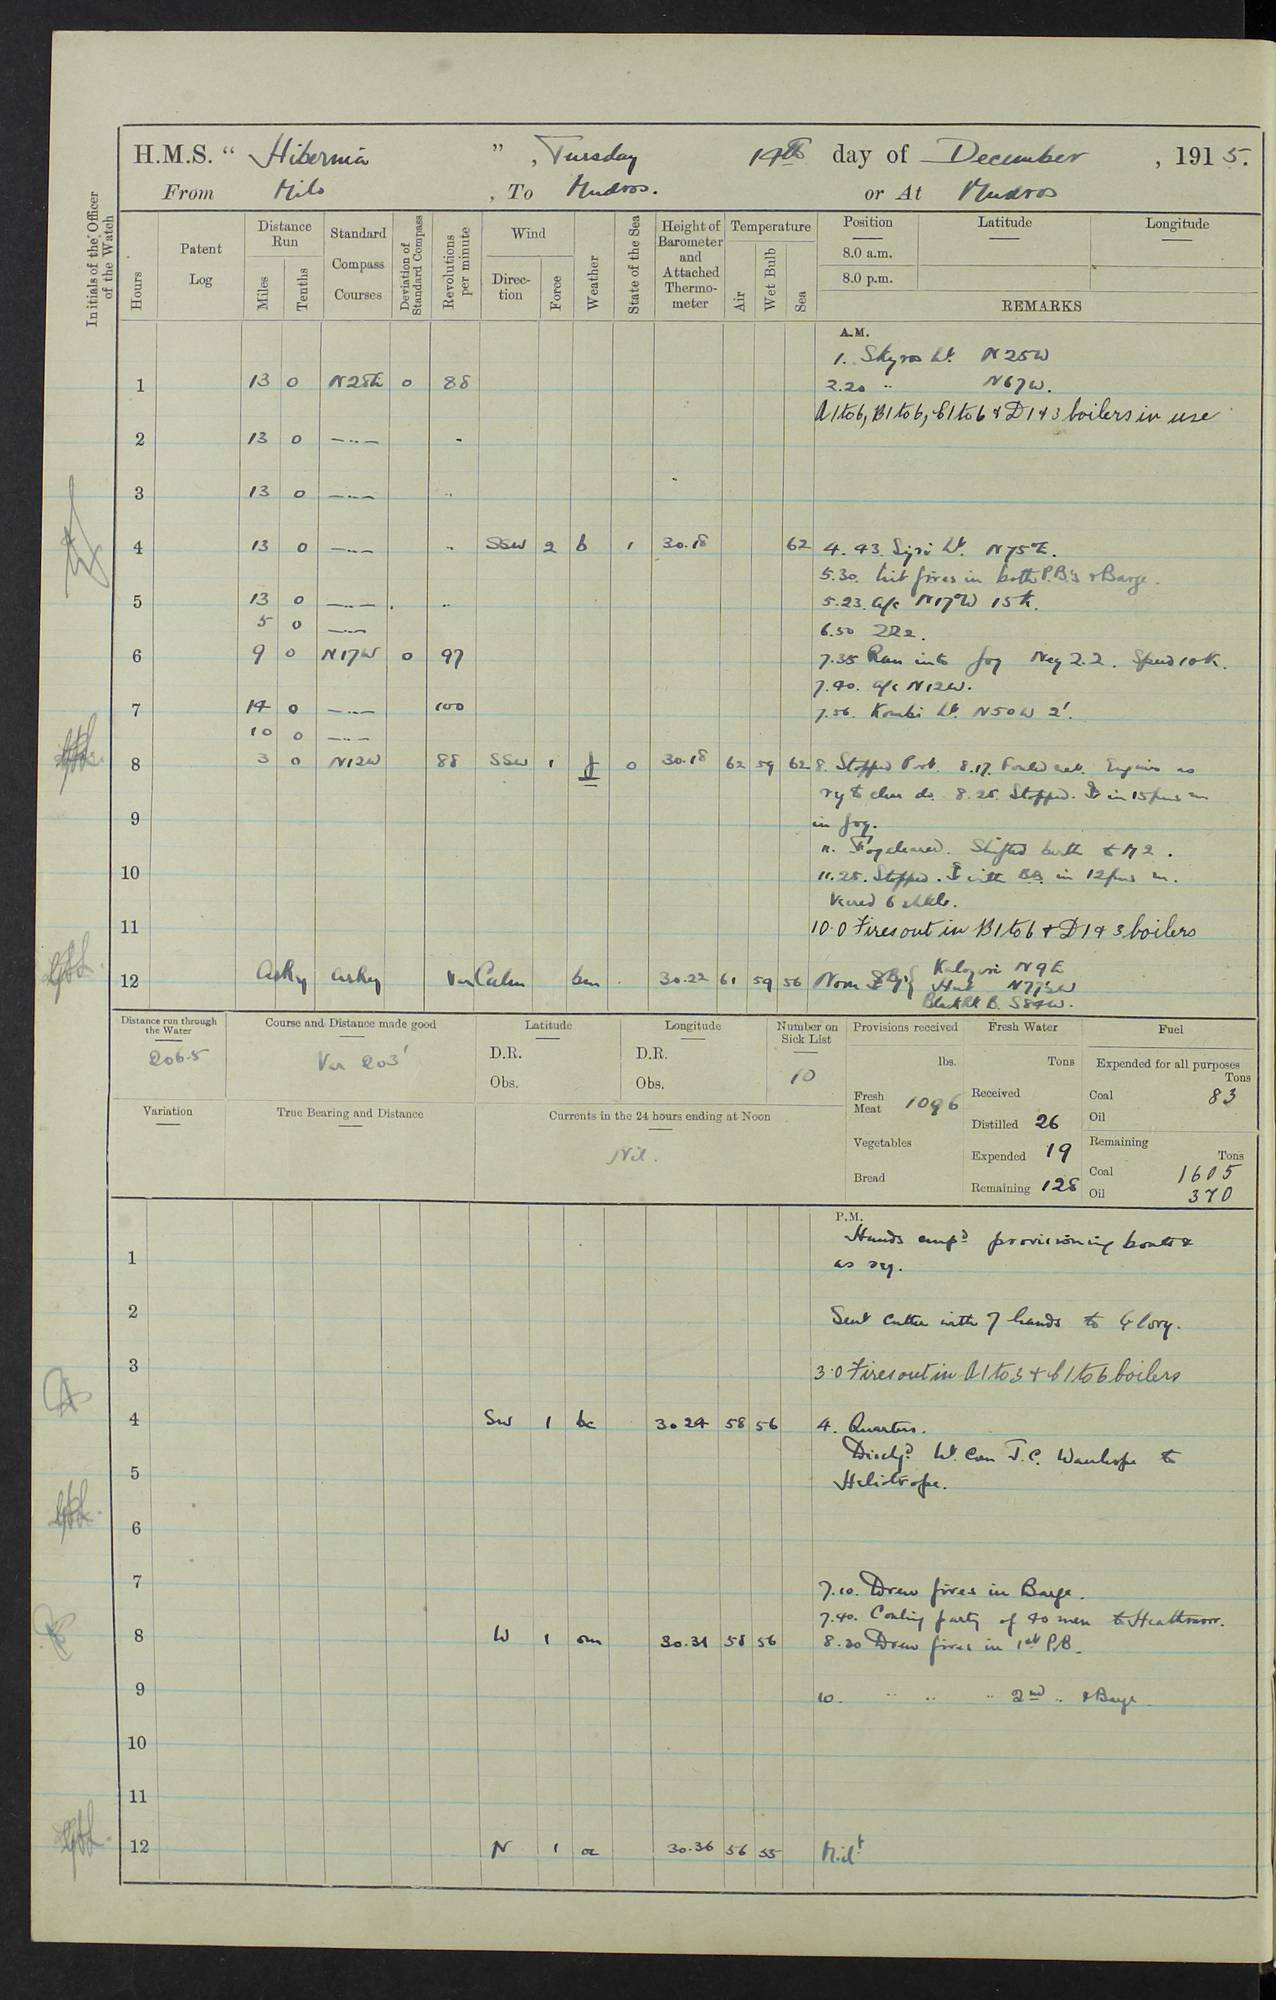 H.M.S. “ Hibernia ”, Tuesday 14th day of December, 1915.
From Milo, To Mudros. or At Mudros
Initials of the Officer of the Watch
Hours
Patent Log
Distance Run
Miles
Tenths
Standard Compass Courses
Deviation of Standard Compass
Revolutions per minute
Wind
Direction
Force
Weather
State of the Sea
Height of Barometer and Attached Thermometer
Temperature
Air
Wet Bulb
Sea
Position
Latitude
Longitude
8.0 a.m.
8.0 p.m.
REMARKS
A.M.
1. Skyros Lt. N25W
1 13 0 N28E 0 88 2.20 " N67W.
A1to6, B1to6, C1to6 & D1&3 boilers in use
2 13 0 —..— "
3 13 0 —..— ..
4 13 0 —..— .. SSW 2 b 1 30.18 62 4.43. Lt. N75E.
5.30. Lit fires in both P.B's & Barge.
5 13 0 —..— .. 5.23. A/c N17W 15K.
5 0 —..— 6.50
6 9 0 N17W 0 97 7.35 Ran into fog Neg 2.2. Speed 10K.
7.40. A/c N12W.
7 14 0 —..— 100 7.56. Kombi Lt. N50W 2'.
10 0 —..—
8 3 0 N12W 88 SSW 1 f 0 30.18 62 59 62 8. Stopped Port. 8.17. Engines as
req to clear do. 8.25. Stopped. in 15 fms m
9 in fog.
11. Fog cleared. Shifted berth to M2.
10 11.25. Stopped. with in 12 fms m.
Veered 6 shkls.
11 10.0 Fires out in B1to6 & D1&3 boilers
12 As req As req Var Calm bm 30.22 61 59 56 Noon N9E
N77½W
Black Rk B. S84W.
Distance run through the Water
206.5
Course and Distance made good
Var 203'
Latitude
D.R.
Obs.
Longitude
D.R.
Obs.
Number on Sick List
10
Provisions received
lbs.
Fresh Meat 1096
Vegetables
Bread
Fresh Water
Tons
Received
Distilled 26
Expended 19
Remaining 128
Fuel
Expended for all purposes
Tons
Coal 83
Oil
Remaining
Tons
Coal 1605
Oil 370
Variation
True Bearing and Distance
Currents in the 24 hours ending at Noon
Nil.
P.M.
Hands emp'd provisioning boats &
1 as req.
2 Sent cutter with 7 hands to Glory.
3 3.0 Fires out in A1to3 & C1to6 boilers
4 SW 1 bc 30.24 58 56 4. Quarters.
Dischg'd Lt. Com J.C. Wauhope to
5 Heliotrope.
6
7 7.10. Drew fires in Barge.
7.40. Coaling party of 40 men to Heathmoor.
8 W 1 om 30.31 58 56 8.20 Drew fires in 1st P.B.
9 10. .. .. .. 2nd .. & Barge.
10
11
12 N 1 oc 30.36 56 55 Mid't